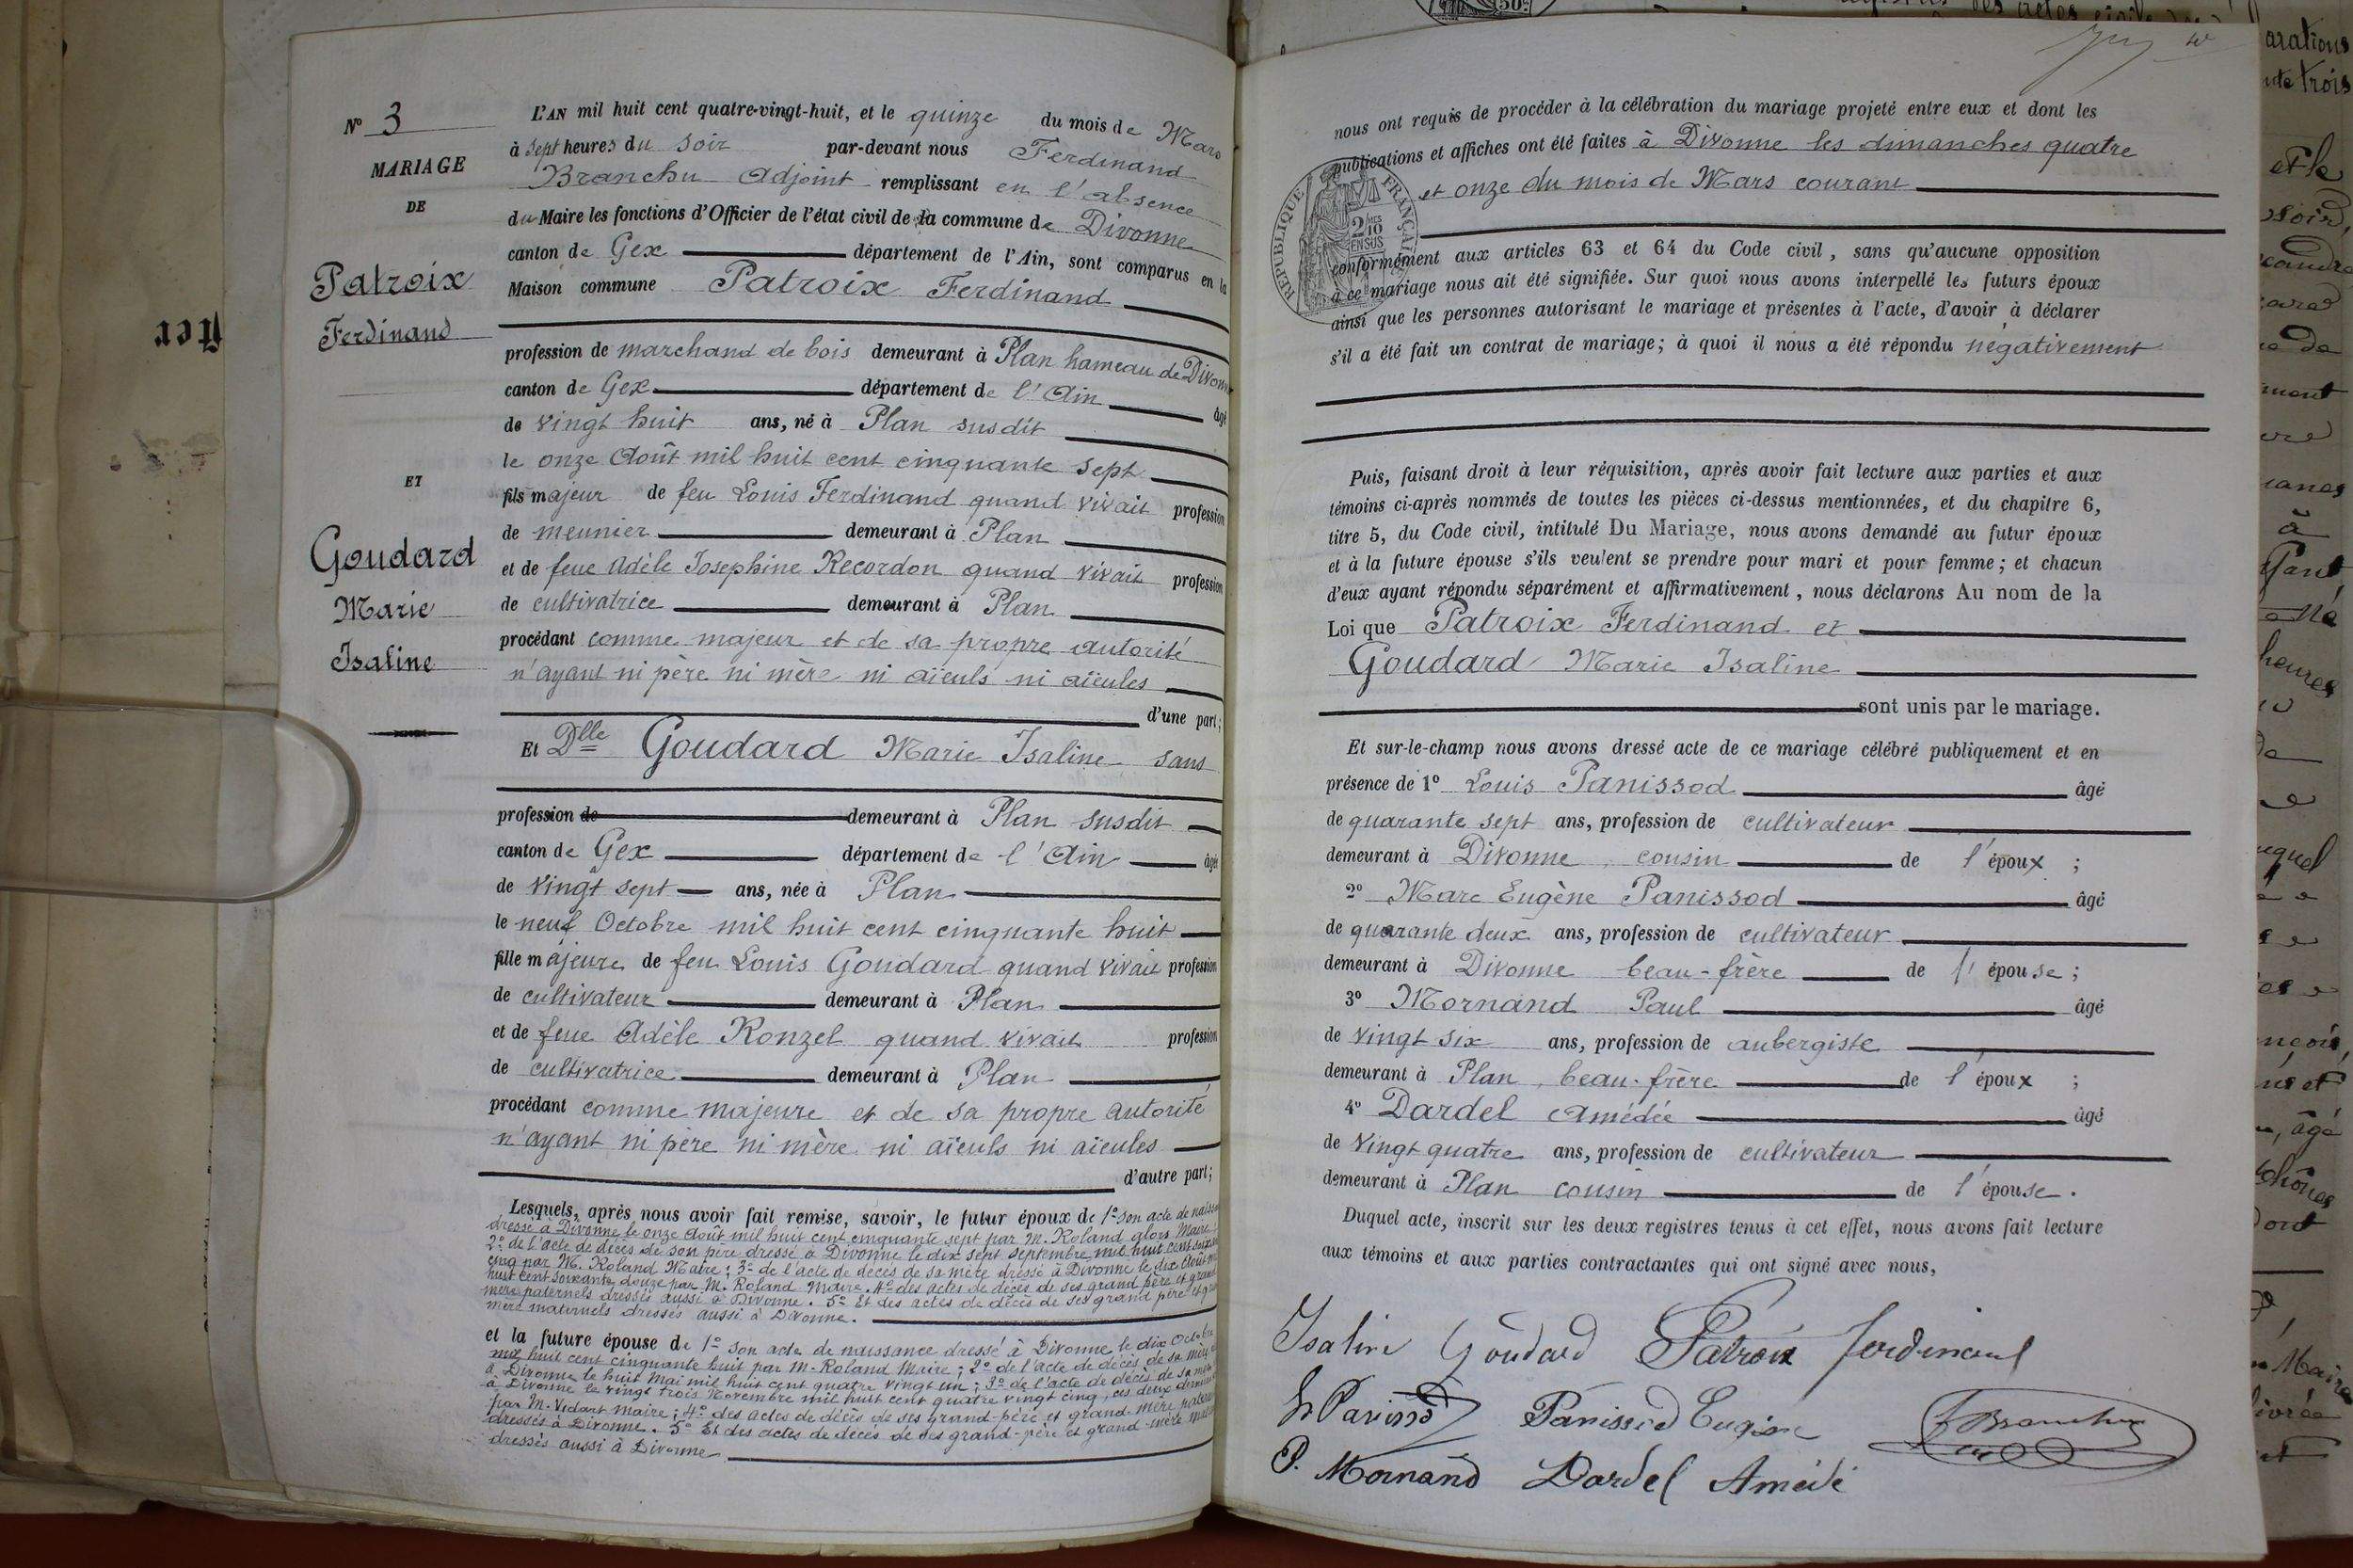 N° 3
MARIAGE
DE
Patroix
Ferdinand
ET
Goudard
Marie
Isaline
L'AN mil huit cent quatre-vingt-huit, et le quinze du mois de Mars
à sept heures du soir par-devant nous Ferdinand
Branchu Adjoint remplissant en l'absence
du Maire les fonctions d'Officier de l'état civil de la commune de Divonne
canton de Gex département de l'Ain, sont comparus en la
Maison commune Patroix Ferdinand
profession de marchand de bois demeurant à Plan hameau de Divonne
canton de Gex département de l'Ain âgé
de vingt huit ans, né à Plan susdit
le onze Août mil huit cent cinquante sept
fils majeur de feu Louis Ferdinand quand vivait profession
de meunier demeurant à Plan
et de feue Adèle Josephine Recordon quand vivait profession
de cultivatrice demeurant à Plan
procédant comme majeur et de sa propre autorité
n'ayant ni père ni mère ni aïeuls ni aïeules
d'une part;
Et Dlle Goudard Marie Isaline sans
profession de demeurant à Plan susdit
canton de Gex département de l'Ain âgé
de vingt sept ans, née à Plan
le neuf Octobre mil huit cent cinquante huit
fille majeure de feu Louis Goudard quand vivait profession
de cultivateur demeurant à Plan
et de feue Adèle Ronzel quand vivait profession
de cultivatrice demeurant à Plan
procédant comme majeure et de sa propre autorité
n'ayant ni père ni mère ni aïeuls ni aïeules
d'autre part;
Lesquels, après nous avoir fait remise, savoir, le futur époux de 1° son acte de
dressé à Divonne le onze Août mil huit cent cinquante sept par M. Roland alors Maire;
2° de l'acte de décès de son père dressé à Divonne le dix sept septembre mil huit cent
cinq par M. Roland Maire; 3° de l'acte de décès de sa mère dressé à Divonne le dix Août
huit cent soixante douze par M. Roland Maire. 4° des actes de décès de ses grand père et grand
mère paternels dressés aussi à Divonne. 5° Et des actes de décès de ses grand père et
mère maternels dressés aussi à Divonne.
et la future épouse de 1° son acte de naissance dressé à Divonne le dix Octobre
mil huit cent cinquante huit par M. Roland Maire; 2° de l'acte de décès de sa
à Divonne le huit Mai mil huit cent quatre vingt un; 3° de l'acte de décès de sa
à Divonne le vingt trois Novembre mil huit cent quatre vingt cinq, ces deux
par M. Vidart Maire; 4° des actes de décès de ses grand-père et grand mère
dressés à Divonne. 5° Et des actes de décès de ses grand-père et grand-mère
dressés aussi à Divonne
nous ont requis de procéder à la célébration du mariage projeté entre eux et dont les
publications et affiches ont été faites à Divonne les dimanches quatre
et onze du mois de Mars courant
RÉPUBLIQUE FRANÇAISE
conformément aux articles 63 et 64 du Code civil, sans qu'aucune opposition
à ce mariage nous ait été signifiée. Sur quoi nous avons interpellé les futurs époux
ainsi que les personnes autorisant le mariage et présentes à l'acte, d'avoir à déclarer
s'il a été fait un contrat de mariage; à quoi il nous a été répondu négativement
Puis, faisant droit à leur réquisition, après avoir fait lecture aux parties et aux
témoins ci-après nommés de toutes les pièces ci-dessus mentionnées, et du chapitre 6,
titre 5, du Code civil, intitulé Du Mariage, nous avons demandé au futur époux
et à la future épouse s'ils veulent se prendre pour mari et pour femme; et chacun
d'eux ayant répondu séparément et affirmativement, nous déclarons Au nom de la
Loi que Patroix Ferdinand et
Goudard Marie Isaline
sont unis par le mariage.
Et sur-le-champ nous avons dressé acte de ce mariage célébré publiquement et en
présence de 1° Louis Panissod âgé
de quarante sept ans, profession de cultivateur
demeurant à Divonne, cousin de l'époux;
2° Marc Eugène Panissod âgé
de quarante deux ans, profession de cultivateur
demeurant à Divonne beau-frère de l'épouse;
3° Mornand Paul âgé
de vingt six ans, profession de aubergiste
demeurant à Plan, beau-frère de l'époux;
4° Dardel Amédée âgé
de vingt quatre ans, profession de cultivateur
demeurant à Plan cousin de l'épouse.
Duquel acte, inscrit sur les deux registres tenus à cet effet, nous avons fait lecture
aux témoins et aux parties contractantes qui ont signé avec nous,
Isaline Goudard Patroix Ferdinand
L Panissod Panissod Eugène F Branchu
P. Mornand Dardel Amédé